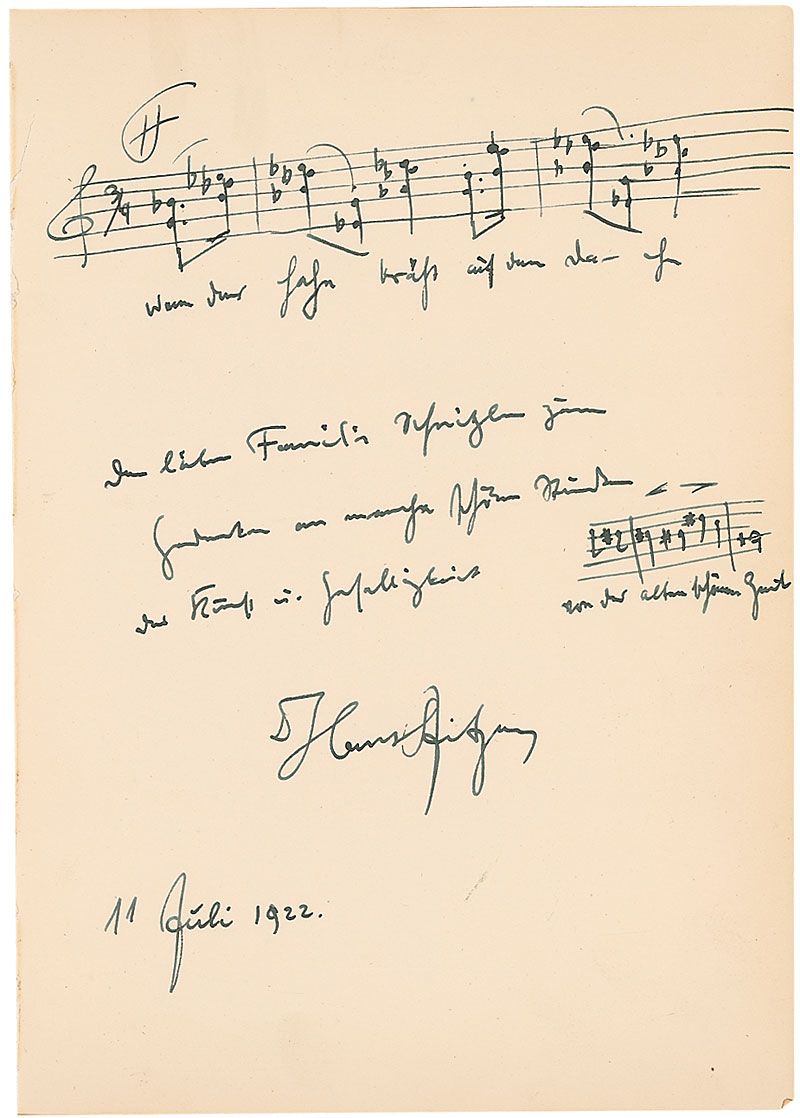 H
3/4
Wenn der Hahn kräht auf dem Da- ch
Der lieben Familie zum
Gedenken an manche schöne Stunden
der Kunst u. Geselligkeit
von der alten schönen Zeit
Dr Hans Pfitzner
11 Juli 1922.